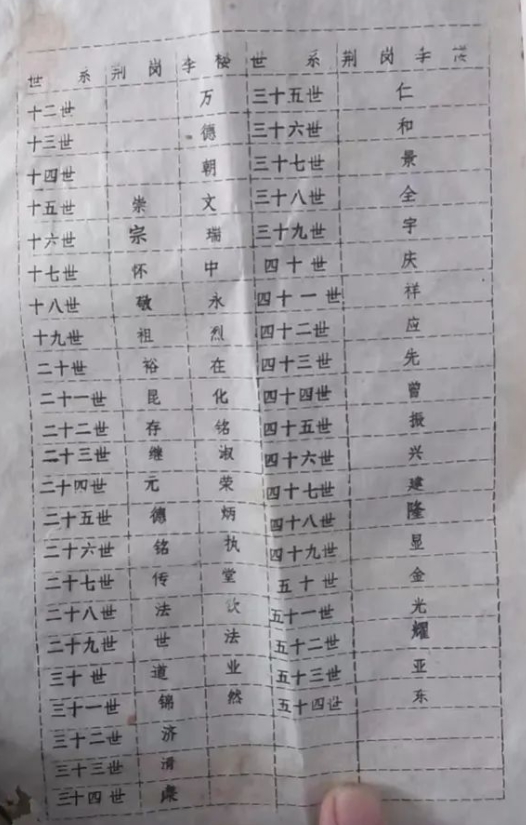 世 系 荆 岗 李 楼 世 系 荆 岗 李
十二世 万 三十五世 仁
十三世 德 三十六世 和
十四世 朝 三十七世 景
十五世 崇 文 三十八世 全
十六世 宗 瑞 三十九世 宇
十七世 怀 中 四十世 庆
十八世 敬 永 四十一世 祥
十九世 祖 烈 四十二世 应
二十世 裕 在 四十三世 先
二十一世 昆 化 四十四世 曾
二十二世 存 铭 四十五世 振
二十三世 继 淑 四十六世 兴
二十四世 元 荣 四十七世 建
二十五世 德 炳 四十八世 隆
二十六世 铭 执 四十九世 显
二十七世 传 堂 五十世 金
二十八世 法 五十一世 光
二十九世 世 法 五十二世 耀
三十世 道 业 五十三世 亚
三十一世 锦 然 五十四世 东
三十二世 济
三十三世 清
三十四世